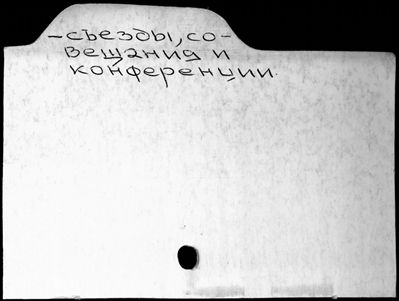 -съезды, со-
вещания и
конференции.